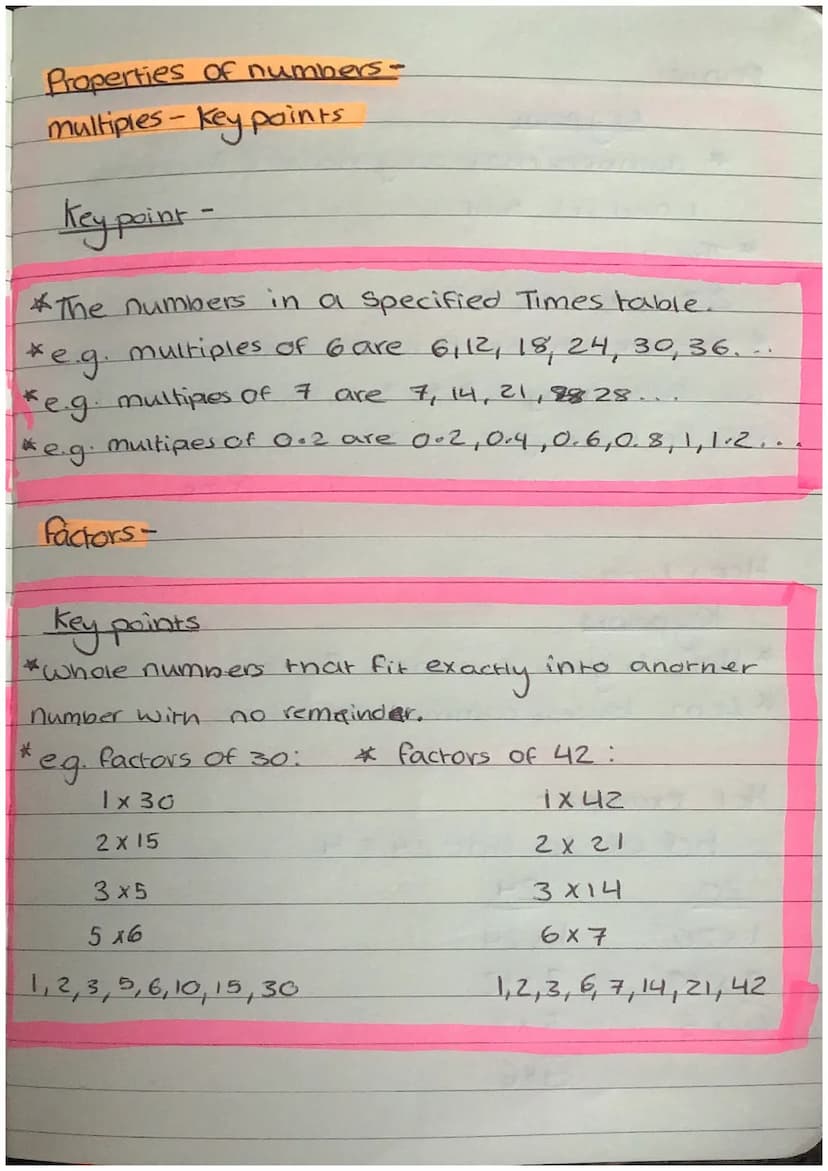 Properties of numbers-
multiples - key points
Key point -
* The numbers in a specified Times table.
* e.g. multiples of 6 are 6, 12, 18, 24, 30, 36...
* e.g. multipes of 7 are 7, 14, 21, 28...
* e.g. multipes of 0.2 are 0.2, 0.4, 0.6, 0.8, 1, 1.2...
factors-
Key points
* whole numbers that fit exactly into another
number with no remainder.
* eg. factors of 30: * factors of 42:
1 x 30 1 x 42
2 x 15 2 x 21
3 x 5 3 x 14
5 x 6 6 x 7
1, 2, 3, 5, 6, 10, 15, 30 1, 2, 3, 6, 7, 14, 21, 42